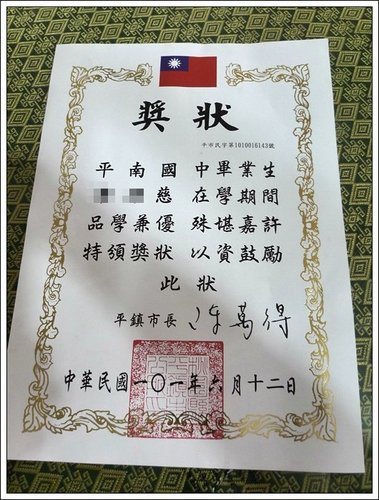 獎狀
平市民字第1010016143號
平南國中畢業生
慈在學期間
品學兼優殊堪嘉許
特頒獎狀以資鼓勵
此狀
平鎮市長 陳萬得
中華民國一〇一年六月十二日